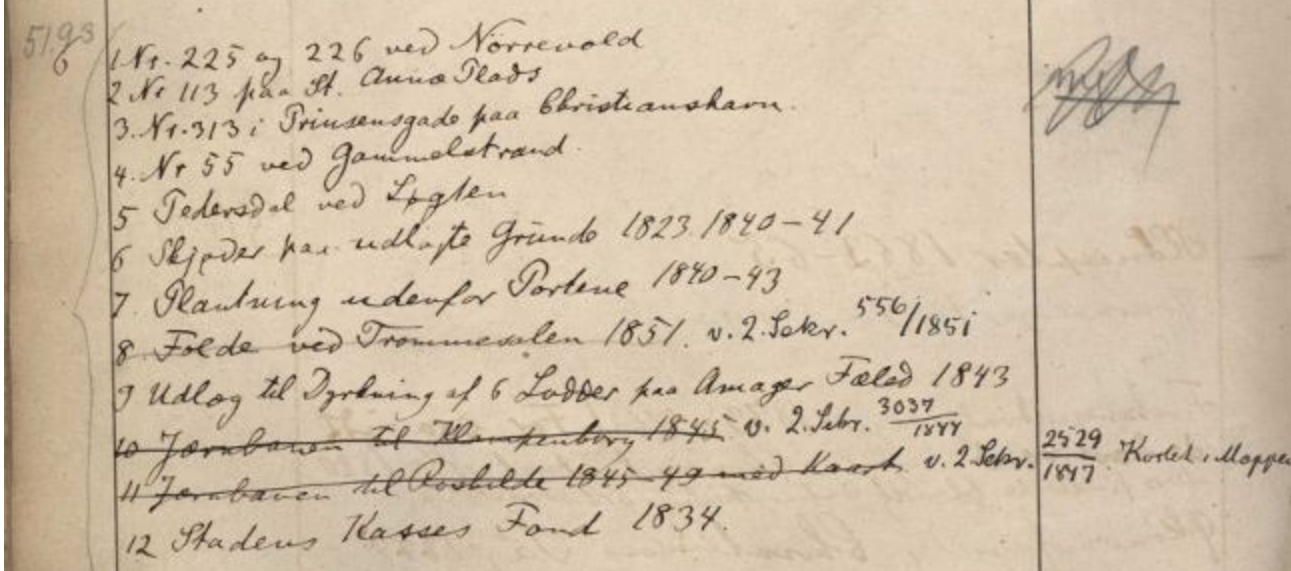 51.93
6
1 Nr. 225 og 226 ved Nörrevold
2 Nr 113 paa St. Annæ Plads
3. Nr. 313 i Prinsensgade paa Christianshavn.
4. Nr 55 ved Gammelstrand.
5 Pedersdal ved Løgten
6 Skjøder paa udlagte Grunde 1823. 1840-41
7. Plantning udenfor Portene 1840-43
8 Folde ved Trommesalen 1851. v. 2. Sekr. 556/1851
9 Udlæg til Dyrkning af 6 Lodder paa Amager Fælled 1843
10 Jærnbanen til Klampenborg 1845 v. 2. Sekr. 3037/1844
11 Jærnbanen til Roskilde 1845-49 med Kaart v. 2 Sekr. 2529/1847. Kortet i Mappen
12 Stadens Kasses Fond 1834.